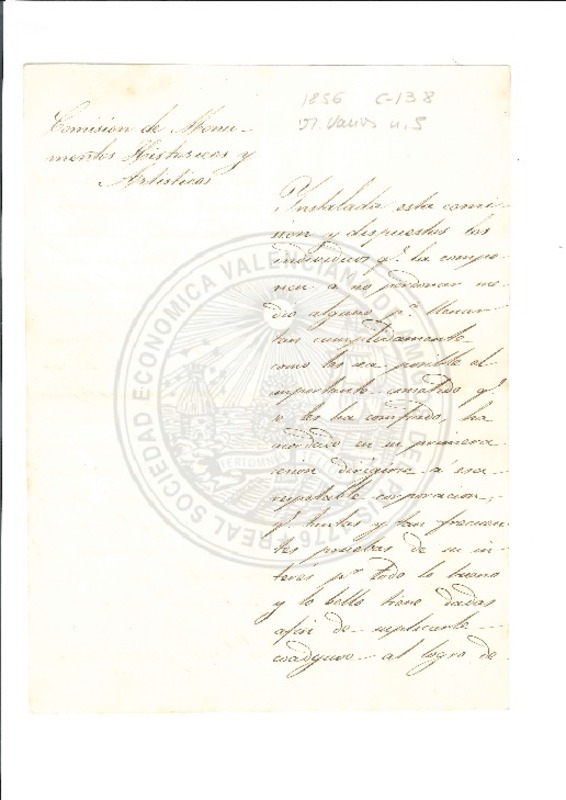 1856 C-138
VI. Varios n. 5
Comision de Monu-
mentos Historicos y
Artisticos
Instalada esta comi-
sion y dispuestos los
individuos q.e la compo-
nen a no perdonar me-
dio alguno p.a llenar
tan cumplidamente
como les sea posible el
importante cometido q.e
se les ha confiado, ha
acordado en su primera
sesion dirigirse á esa
respetable corporacion,
q.e tantas y tan frecuen-
tes pruebas de su in-
teres p.r todo lo bueno
y lo bello tiene dadas
afin de suplicarle
coadyuve al logro de
REAL SOCIEDAD ECONOMICA VALENCIANA DE AMIGOS DEL PAIS 1776